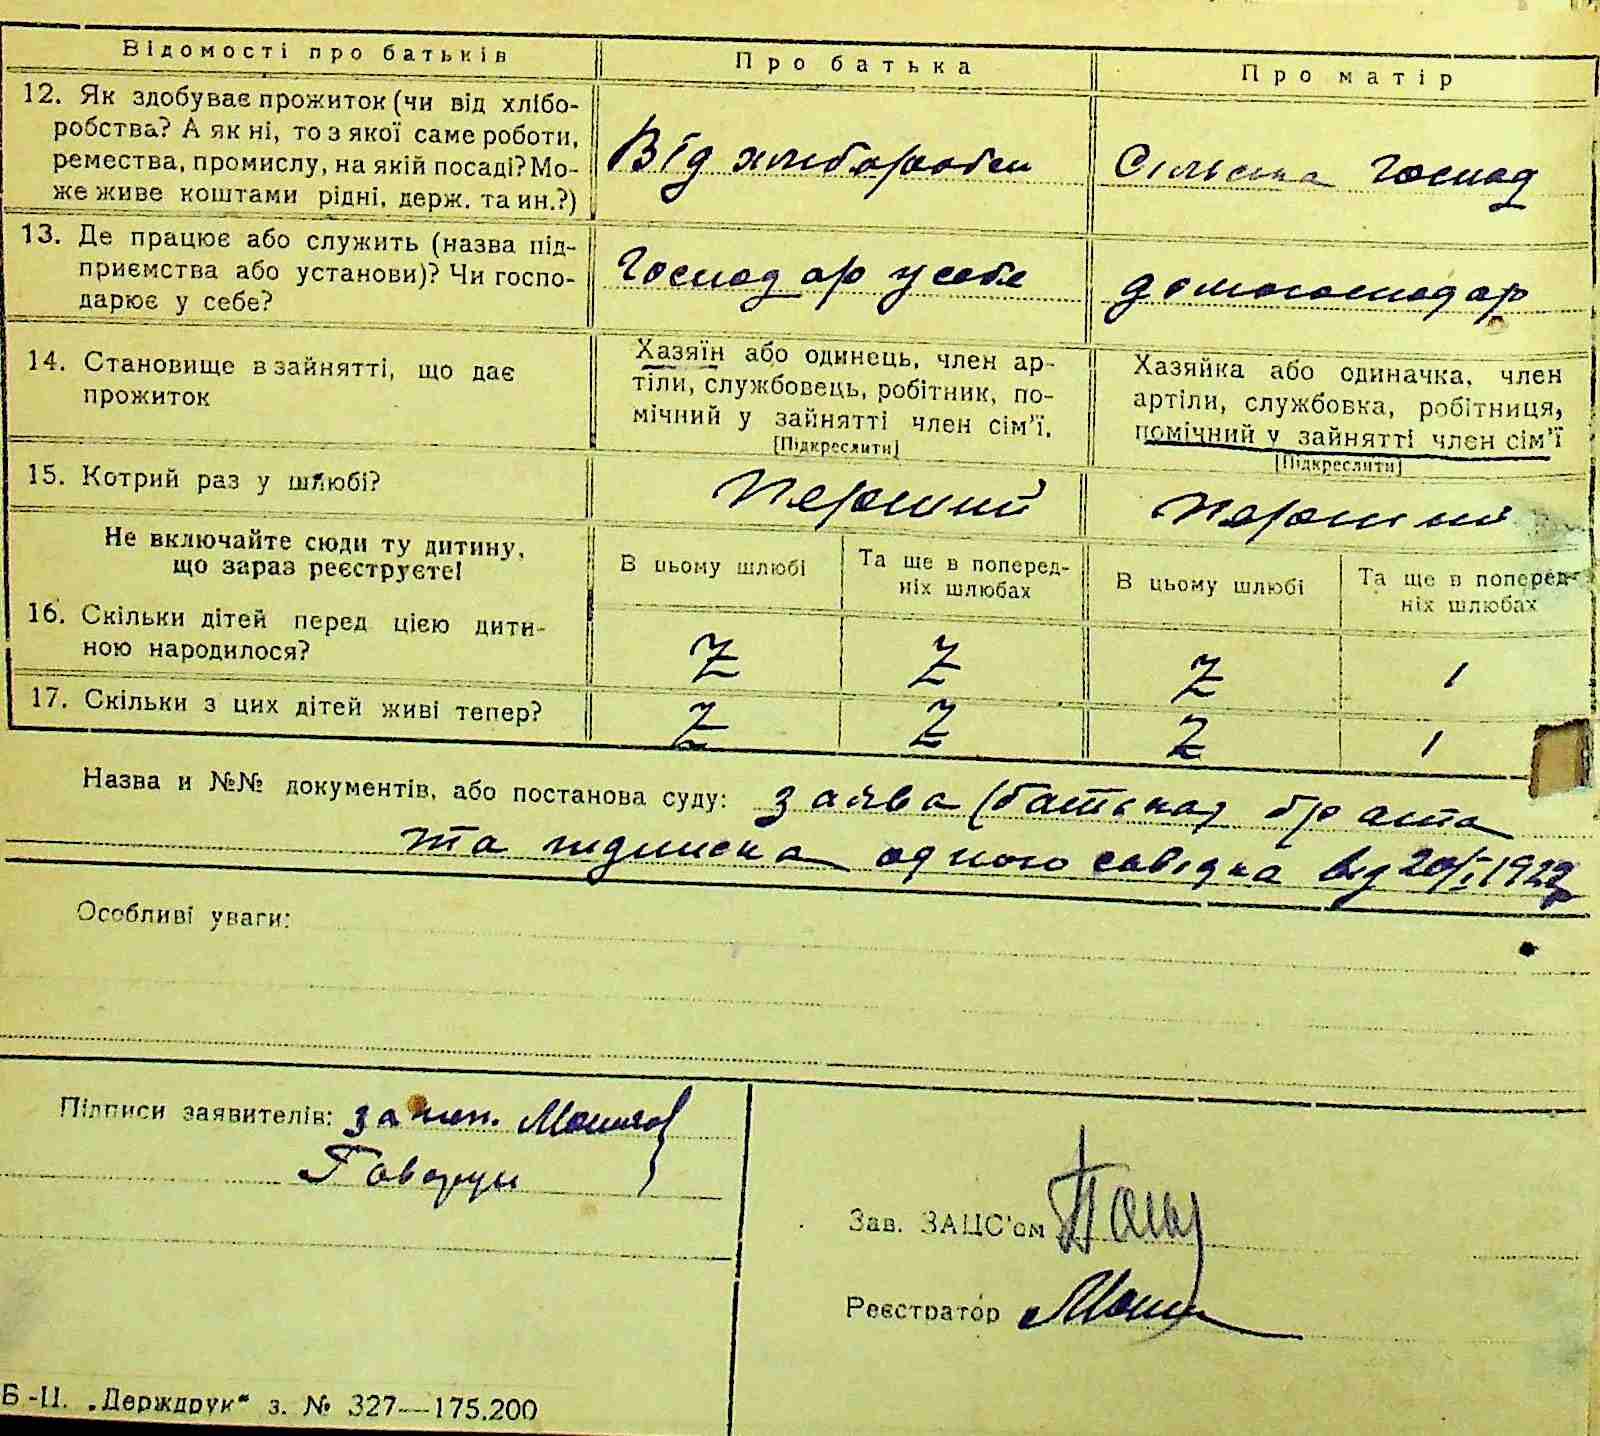 Відомості про батьків
Про батька
Про матір
12. Як здобуває прожиток (чи від хлібо-
робства? А як ні, то з якої саме роботи,
ремества, промислу, на якій посаді? Мо-
же живе коштами рідні, держ. та ин.?)
Від хліборобст
Сільська господ
13. Де працює або служить (назва під-
приємства або установи)? Чи госпо-
дарює у себе?
Господар у себе
домогосподар
14. Становище в зайнятті, що дає
прожиток
Хазяїн або одинець, член ар-
тіли, службовець, робітник, по-
мічний у зайнятті член сім'ї.
[Підкреслити]
Хазяйка або одиначка, член
артіли, службовка, робітниця,
помічний у зайнятті член сім'ї
[Підкреслити]
15. Котрий раз у шлюбі?
Перший
Перший
Не включайте сюди ту дитину,
що зараз реєструєте!
В цьому шлюбі
Та ще в поперед-
ніх шлюбах
В цьому шлюбі
Та ще в поперед-
ніх шлюбах
16. Скільки дітей перед цією дити-
ною народилося?
Z Z Z 1
17. Скільки з цих дітей живі тепер?
Z Z 2 1
Назва и №№ документів, або постанова суду: заява (батька) брата
та підписка одного свідка від 20/I 1929 р
Особливі уваги:
Підписи заявителів: за неп.
Говорун
Зав. ЗАЦС'ом
Реєстратор
Б-ІІ. „Держдрук“ з. № 327—175.200